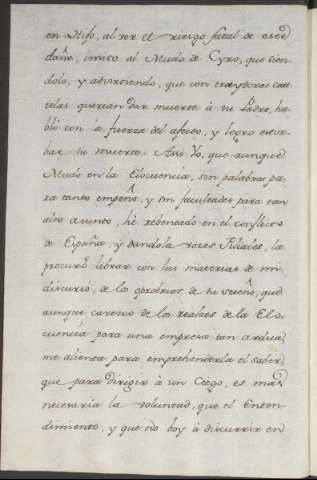 en Hijo, al ver el riesgo fatal de este
daño, imito al Mudo de Cyro, que vien-
dolo, y advirtiendo, que con traydoras cau-
telas querian dar muerte à su Padre, ha-
bló con la fuerza del afecto, y logró estor-
bar su muerte. Assi Yo, que aunque
Mudo en la Elocuencia, sin palabras pa-
ra tanto empeño, y sin facultades para tan
alto asunto, hè rebentado en el conflicto
de España, y dandola voces Filiales, la
procuro librar con las materias de mi
discurso, de los oprobrios de su sueño, que
aunque carezco de los realzes de la Elo-
cuencia para una empresa tan ardua,
me alienta para emprehenderla el saber,
que para dirigir à un Ciego, es mas
necesaria la voluntad, que el Enten-
dimiento, y que no boy à discurrir en